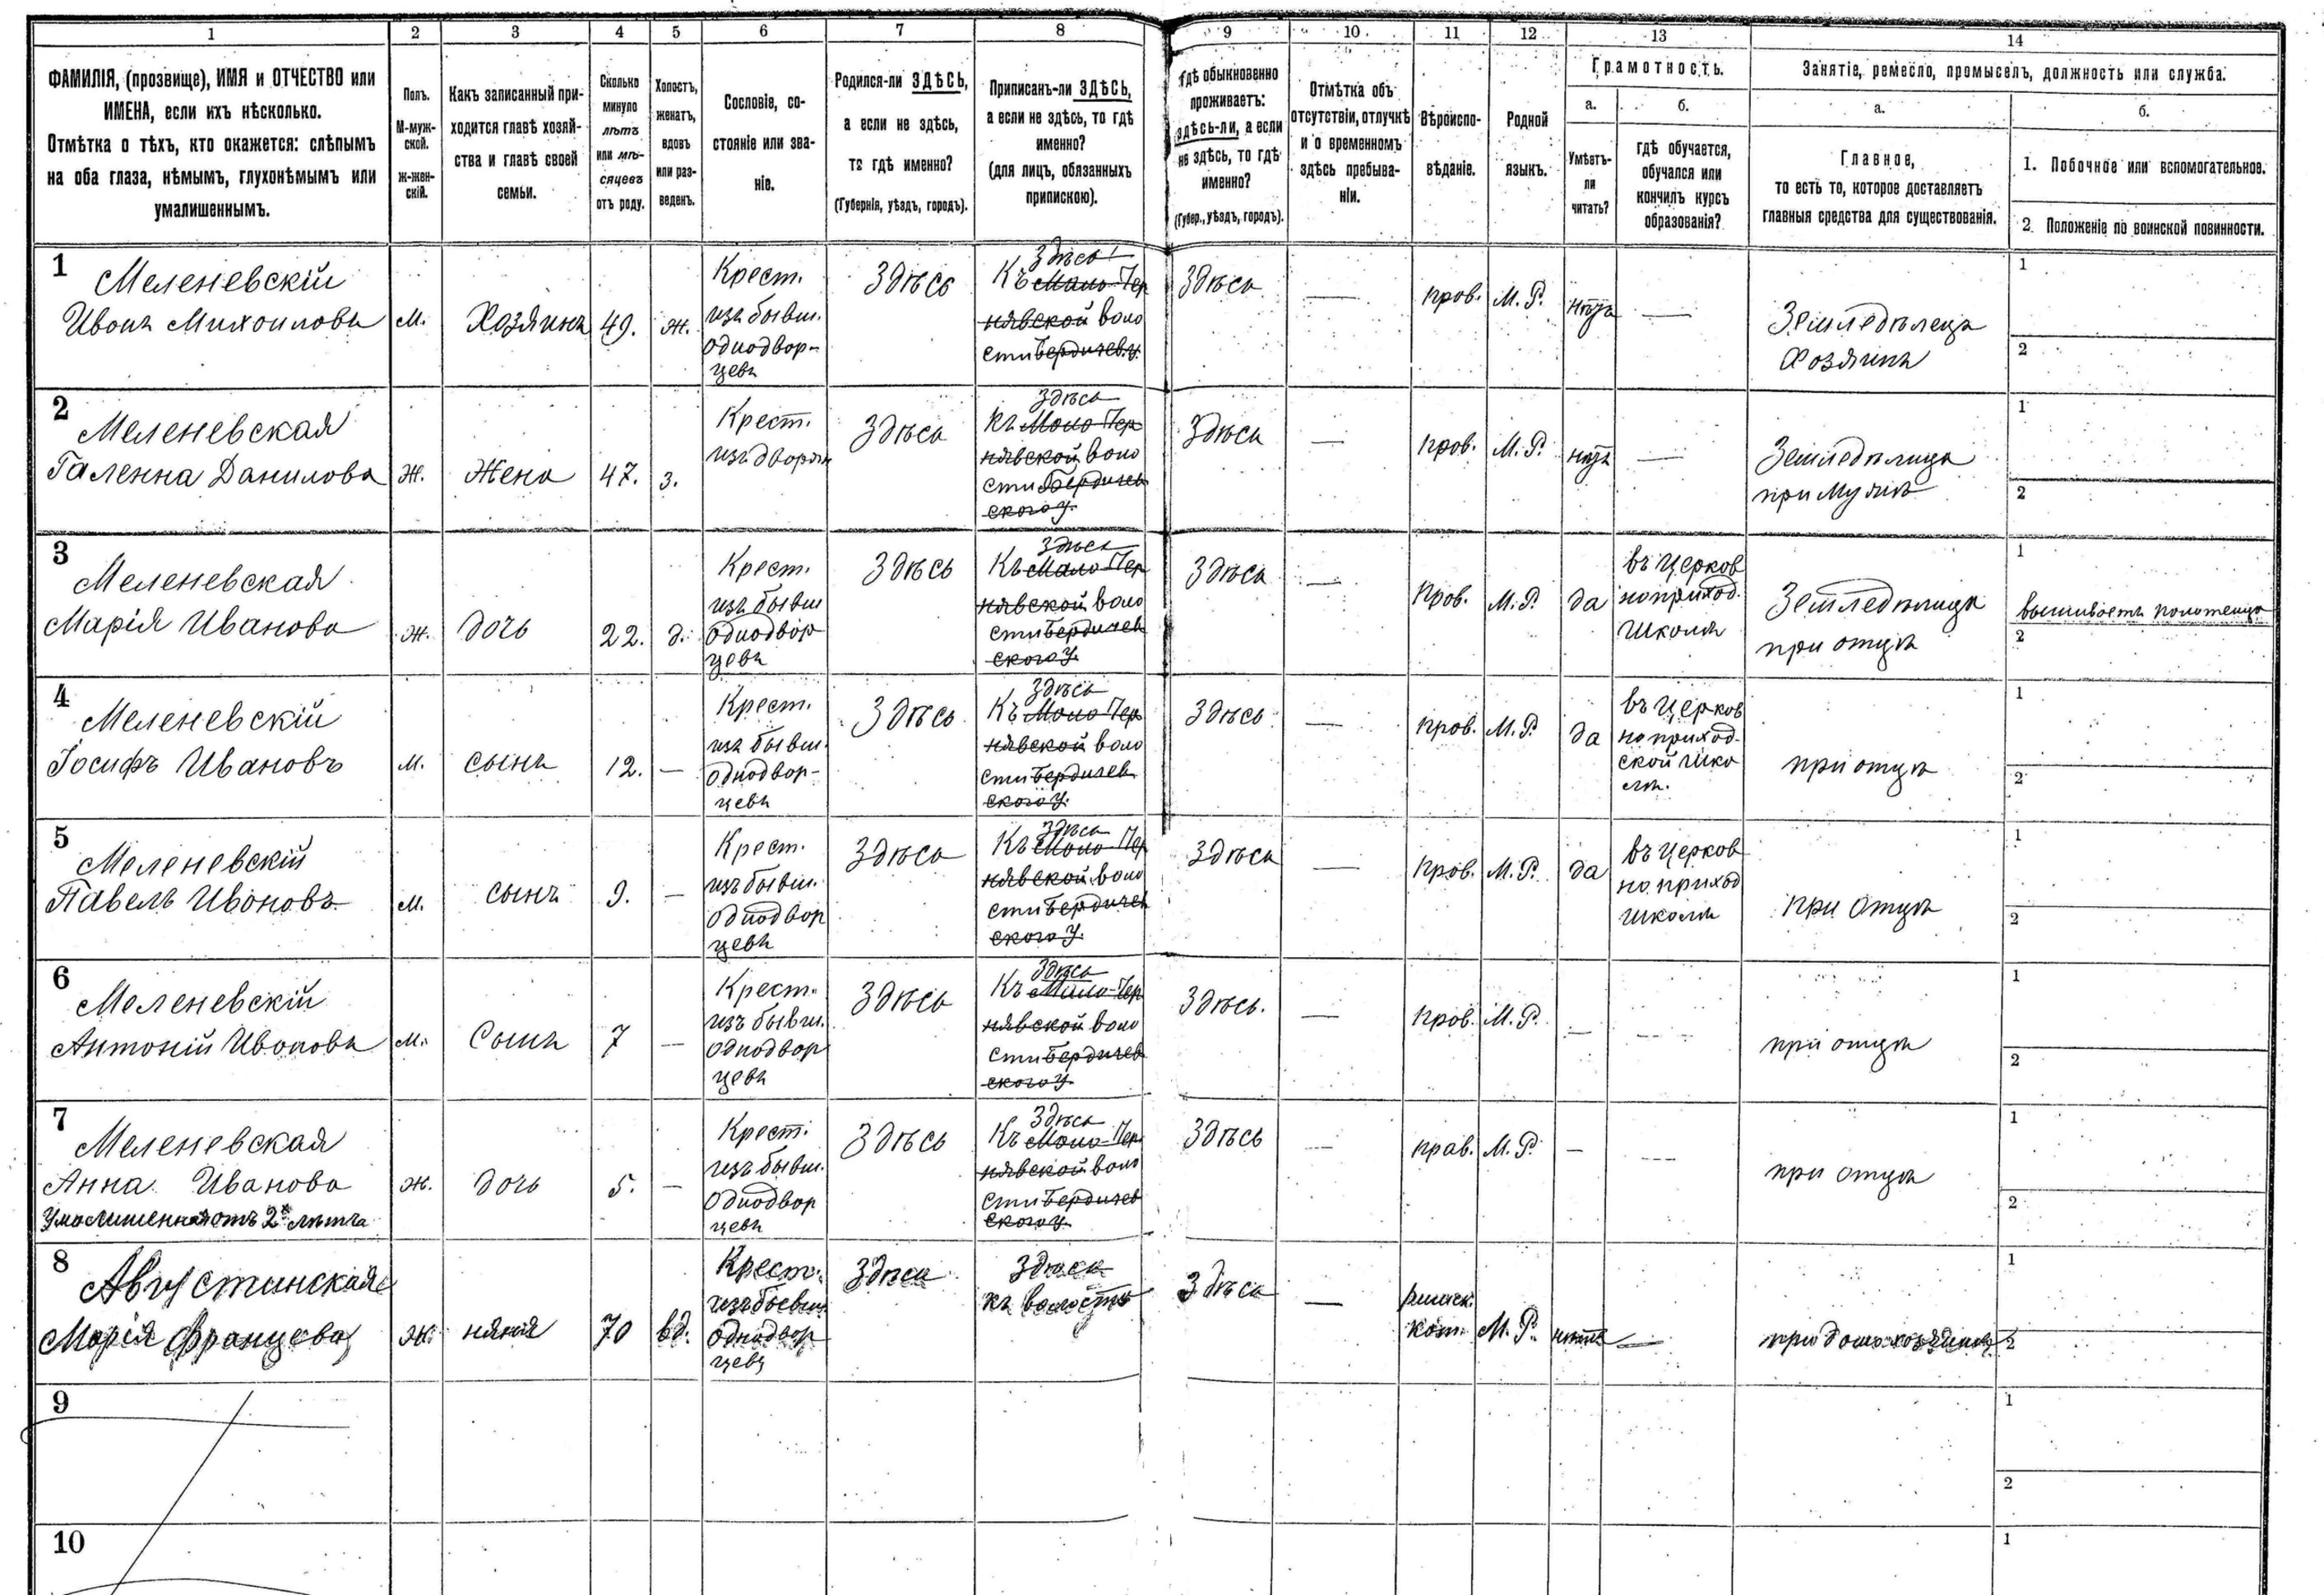 1 2 3 4 5 6 7 8 9 10 11 12 13 14
ФАМИЛІЯ, (прозвище), ИМЯ и ОТЧЕСТВО или
ИМЕНА, если ихъ нѣсколько.
Отмѣтка о тѣхъ, кто окажется: слѣпымъ
на оба глаза, нѣмымъ, глухонѣмымъ или
умалишеннымъ.
Полъ.
М-муж-
ской.
ж-жен-
скій.
Какъ записанный при-
ходится главѣ хозяй-
ства и главѣ своей
семьи.
Сколько
минуло
лѣтъ
или мѣ-
сяцевъ
отъ роду.
Холостъ,
женатъ,
вдовъ
или раз-
веденъ.
Сословіе, со-
стояніе или зва-
ніе.
Родился-ли ЗДѢСЬ,
а если не здѣсь,
то гдѣ именно?
(Губернія, уѣздъ, городъ).
Приписанъ-ли ЗДѢСЬ,
а если не здѣсь, то гдѣ
именно?
(для лицъ, обязанныхъ
припискою).
Гдѣ обыкновенно
проживаетъ:
здѣсь-ли, а если
не здѣсь, то гдѣ
именно?
(Губер., уѣздъ, городъ).
Отмѣтка объ
отсутствіи, отлучкѣ
и о временномъ
здѣсь пребыва-
ніи.
Вѣроиспо-
вѣданіе.
Родной
языкъ.
Грамотность.
а.
Умѣетъ-
ли
читать?
б.
гдѣ обучается,
обучался или
кончилъ курсъ
образованія?
Занятіе, ремесло, промыселъ, должность или служба.
а.
Главное,
то есть то, которое доставляетъ
главныя средства для существованія.
б.
1. Побочное или вспомогательное.
2. Положеніе по воинской повинности.
1
Меленевскій
Иванъ Михоиловъ
М.
Хозяинъ
49.
ж.
Крест.
изъ бывш.
однодвор-
цевъ
Здѣсь
Здѣсь
Къ Мало-Чер
нявской воло
сти Бердичев.у.
Здѣсь
—
прав.
М. Р.
нѣтъ
—
Земледѣлецъ
Хозяинъ
1
2
2
Меленевская
Галенна Данилова
Ж.
Жена
47.
з.
Крест.
изъ дворян
Здѣсь
Здѣсь
Къ Мало-Чер
нявской воло
сти Бердичев
ского у.
Здѣсь
—
прав.
М. Р.
нѣтъ
—
Земледѣлица
при мужѣ
1
2
3
Меленевская
Марія Иванова
ж.
дочь
22.
д.
Крест.
изъ бывш
однодвор
цевъ
Здѣсь
Здѣсь
Къ Мало-Чер
нявской воло
сти Бердичев
ского у.
Здѣсь
—
прав.
М. Р.
да
въ церков
но приход.
школѣ
Земледѣлица
при отцѣ
1
вышиваетъ полотенца
2
4
Меленевскій
Іосифъ Ивановъ
М.
сынъ
12.
—
Крест.
изъ бывш.
однодвор-
цевъ
Здѣсь
Здѣсь
Къ Мало-Чер
нявской воло
сти Бердичев
ского у.
Здѣсь
—
прав.
М. Р.
да
въ церков
но приход-
ской шко
лѣ.
при отцѣ
1
2
5
Меленевскій
Павелъ Ивановъ
М.
сынъ
9.
—
Крест.
изъ бывш.
однодвор
цевъ
Здѣсь
Здѣсь
Къ Мало-Чер
нявской воло
сти Бердичев
ского у.
Здѣсь
—
прав.
М. Р.
да
въ церков
но приход
школѣ
при отцѣ
1
2
6
Меленевскій
Антоній Ивановъ
М.
Сынъ
7
—
Крест.
изъ бывш.
однодвор
цевъ
Здѣсь
Здѣсь
Къ Мало-Чер
нявской воло
сти Бердичев
ского у.
Здѣсь.
—
прав.
М. Р.
—
—
при отцѣ
1
2
7
Меленевская
Анна Иванова
Умолишенная отъ 2х лѣтъ
ж.
дочь
5.
—
Крест.
изъ бывш.
однодвор
цевъ
Здѣсь
Здѣсь
Къ Мало-Чер
нявской воло
сти Бердичев
ского у.
Здѣсь
—
прав.
М. Р.
—
—
при отцѣ
1
2
8
Августинская
Марія Францева
ж.
няня
70
вд.
Крест.
изъ бывш
однодвор
цевъ
Здѣсь
Здѣсь
къ волости
Здѣсь
—
римск.
кат.
М. Р.
нѣтъ
—
при домохозяинѣ
1
2
9
1
2
10
1